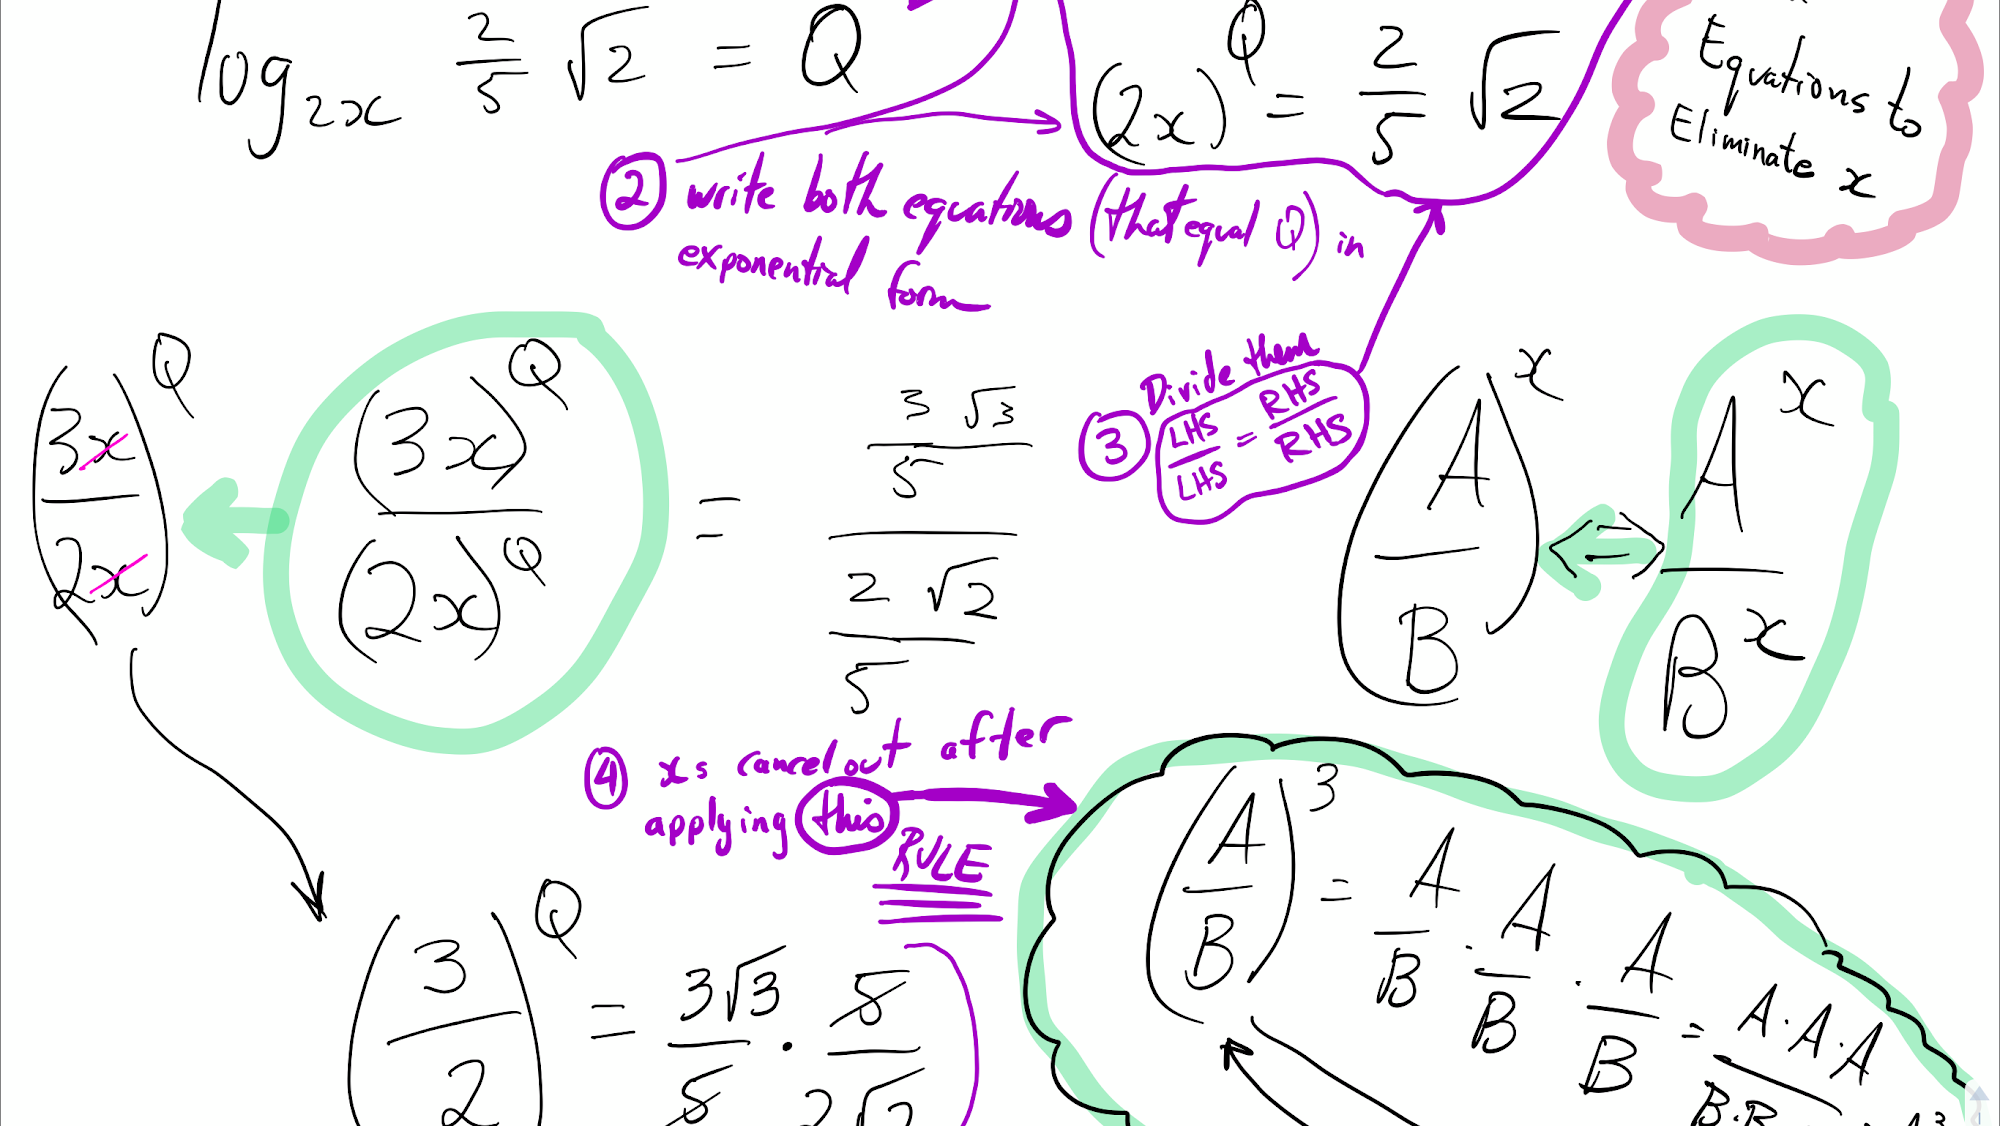 log_{2x} \frac{2}{5} \sqrt{2} = Q
(2x)^Q = \frac{2}{5} \sqrt{2}
Equations to
Eliminate x
② write both equations (that equal Q) in
exponential form
③ Divide them
\frac{LHS}{LHS} = \frac{RHS}{RHS}
\left(\frac{3x}{2x}\right)^Q
\frac{(3x)^Q}{(2x)^Q} = \frac{\frac{3\sqrt{3}}{5}}{\frac{2\sqrt{2}}{5}}
\left(\frac{A}{B}\right)^x ⇔ \frac{A^x}{B^x}
④ xs cancel out after
applying this
RULE
\left(\frac{3}{2}\right)^Q = \frac{3\sqrt{3}}{5} · \frac{5}{2\sqrt{2}}
\left(\frac{A}{B}\right)^3 = \frac{A}{B} · \frac{A}{B} · \frac{A}{B} = \frac{A·A·A}{B·B}